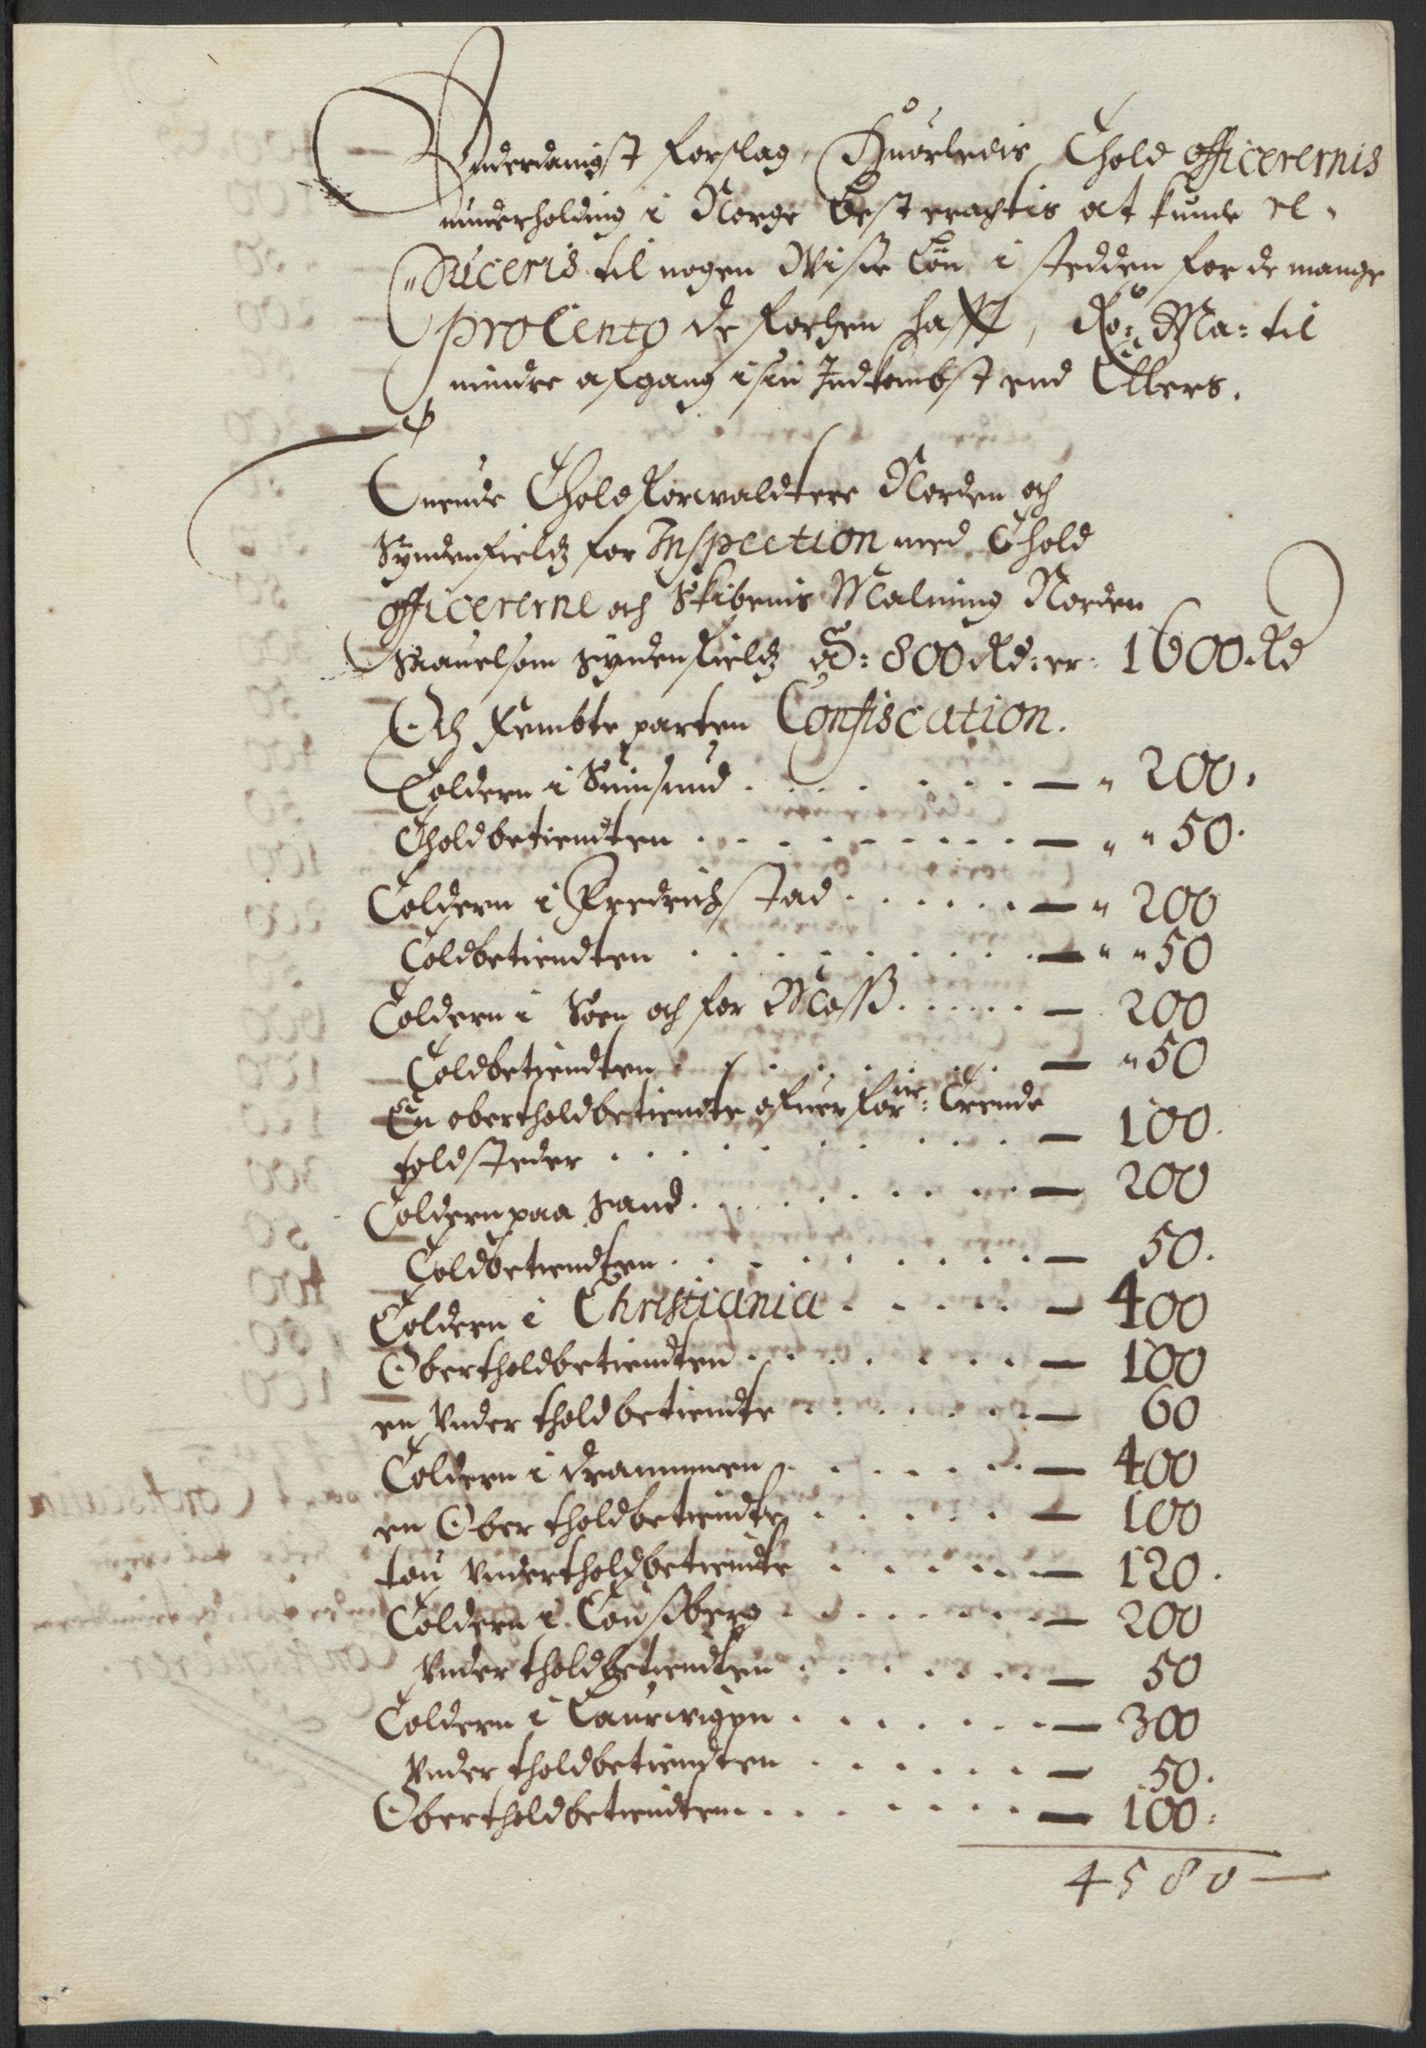 Underdanigst forslag, Huorledis Thold officerernis
underholding i Norge best eragtis at kunde re-
"duceris til nogen Wisse Løn i stedden for de mange
procento de forhen hafft, Ko: Ma: til
mindre afgang i sin Indkombst end Ellers.
Tuende Tholdforwaldtere Norden och
Syndenfields for Inspection med Thold
officererne och Skibenis Maalning Norden
saauelsom syndenfields á: 800 Rd: er: 1600 Rd
Och fembte parten Confiscation.
Tolderen i Suinsund . . . . . . . — " 200.
Tholdbetiendten . . . . . . . . . — " " 50.
Tolderen i Fredrichstad . . . . . . — " 200
Toldbetiendten . . . . . . . . . — " " 50
Tolderen i Soen och for Moss . . . . . — 200
Toldbetiendten . . . . . . . . — " 50
En obertholdbetiendte ofuer for:ne: Trende
toldsteder . . . . . . . . . — 100.
Tolderen paa Sand . . . . . . . . — 200
Toldbetiendten . . . . . . . . — 50.
Tolderen i Christiania . . . . . — 400
Obertholdbetiendten . . . . . . . — 100
en Under tholdbetiendte . . . . . . — 60
Tolderen i Drammen . . . . . . — 400
en Ober tholdbetiendte . . . . . — 100
tou Undertholdbetiendte . . . . . — 120.
Tolderen i Tonsberg . . . . . . — 200
Under tholdbetiendten . . . . . . — 50
Tolderen i Laurwigen . . . . . . — 300
Under tholdbetiendten . . . . . . — 50.
Obertholdbetiendten . . . . . . . — 100:
4580 —